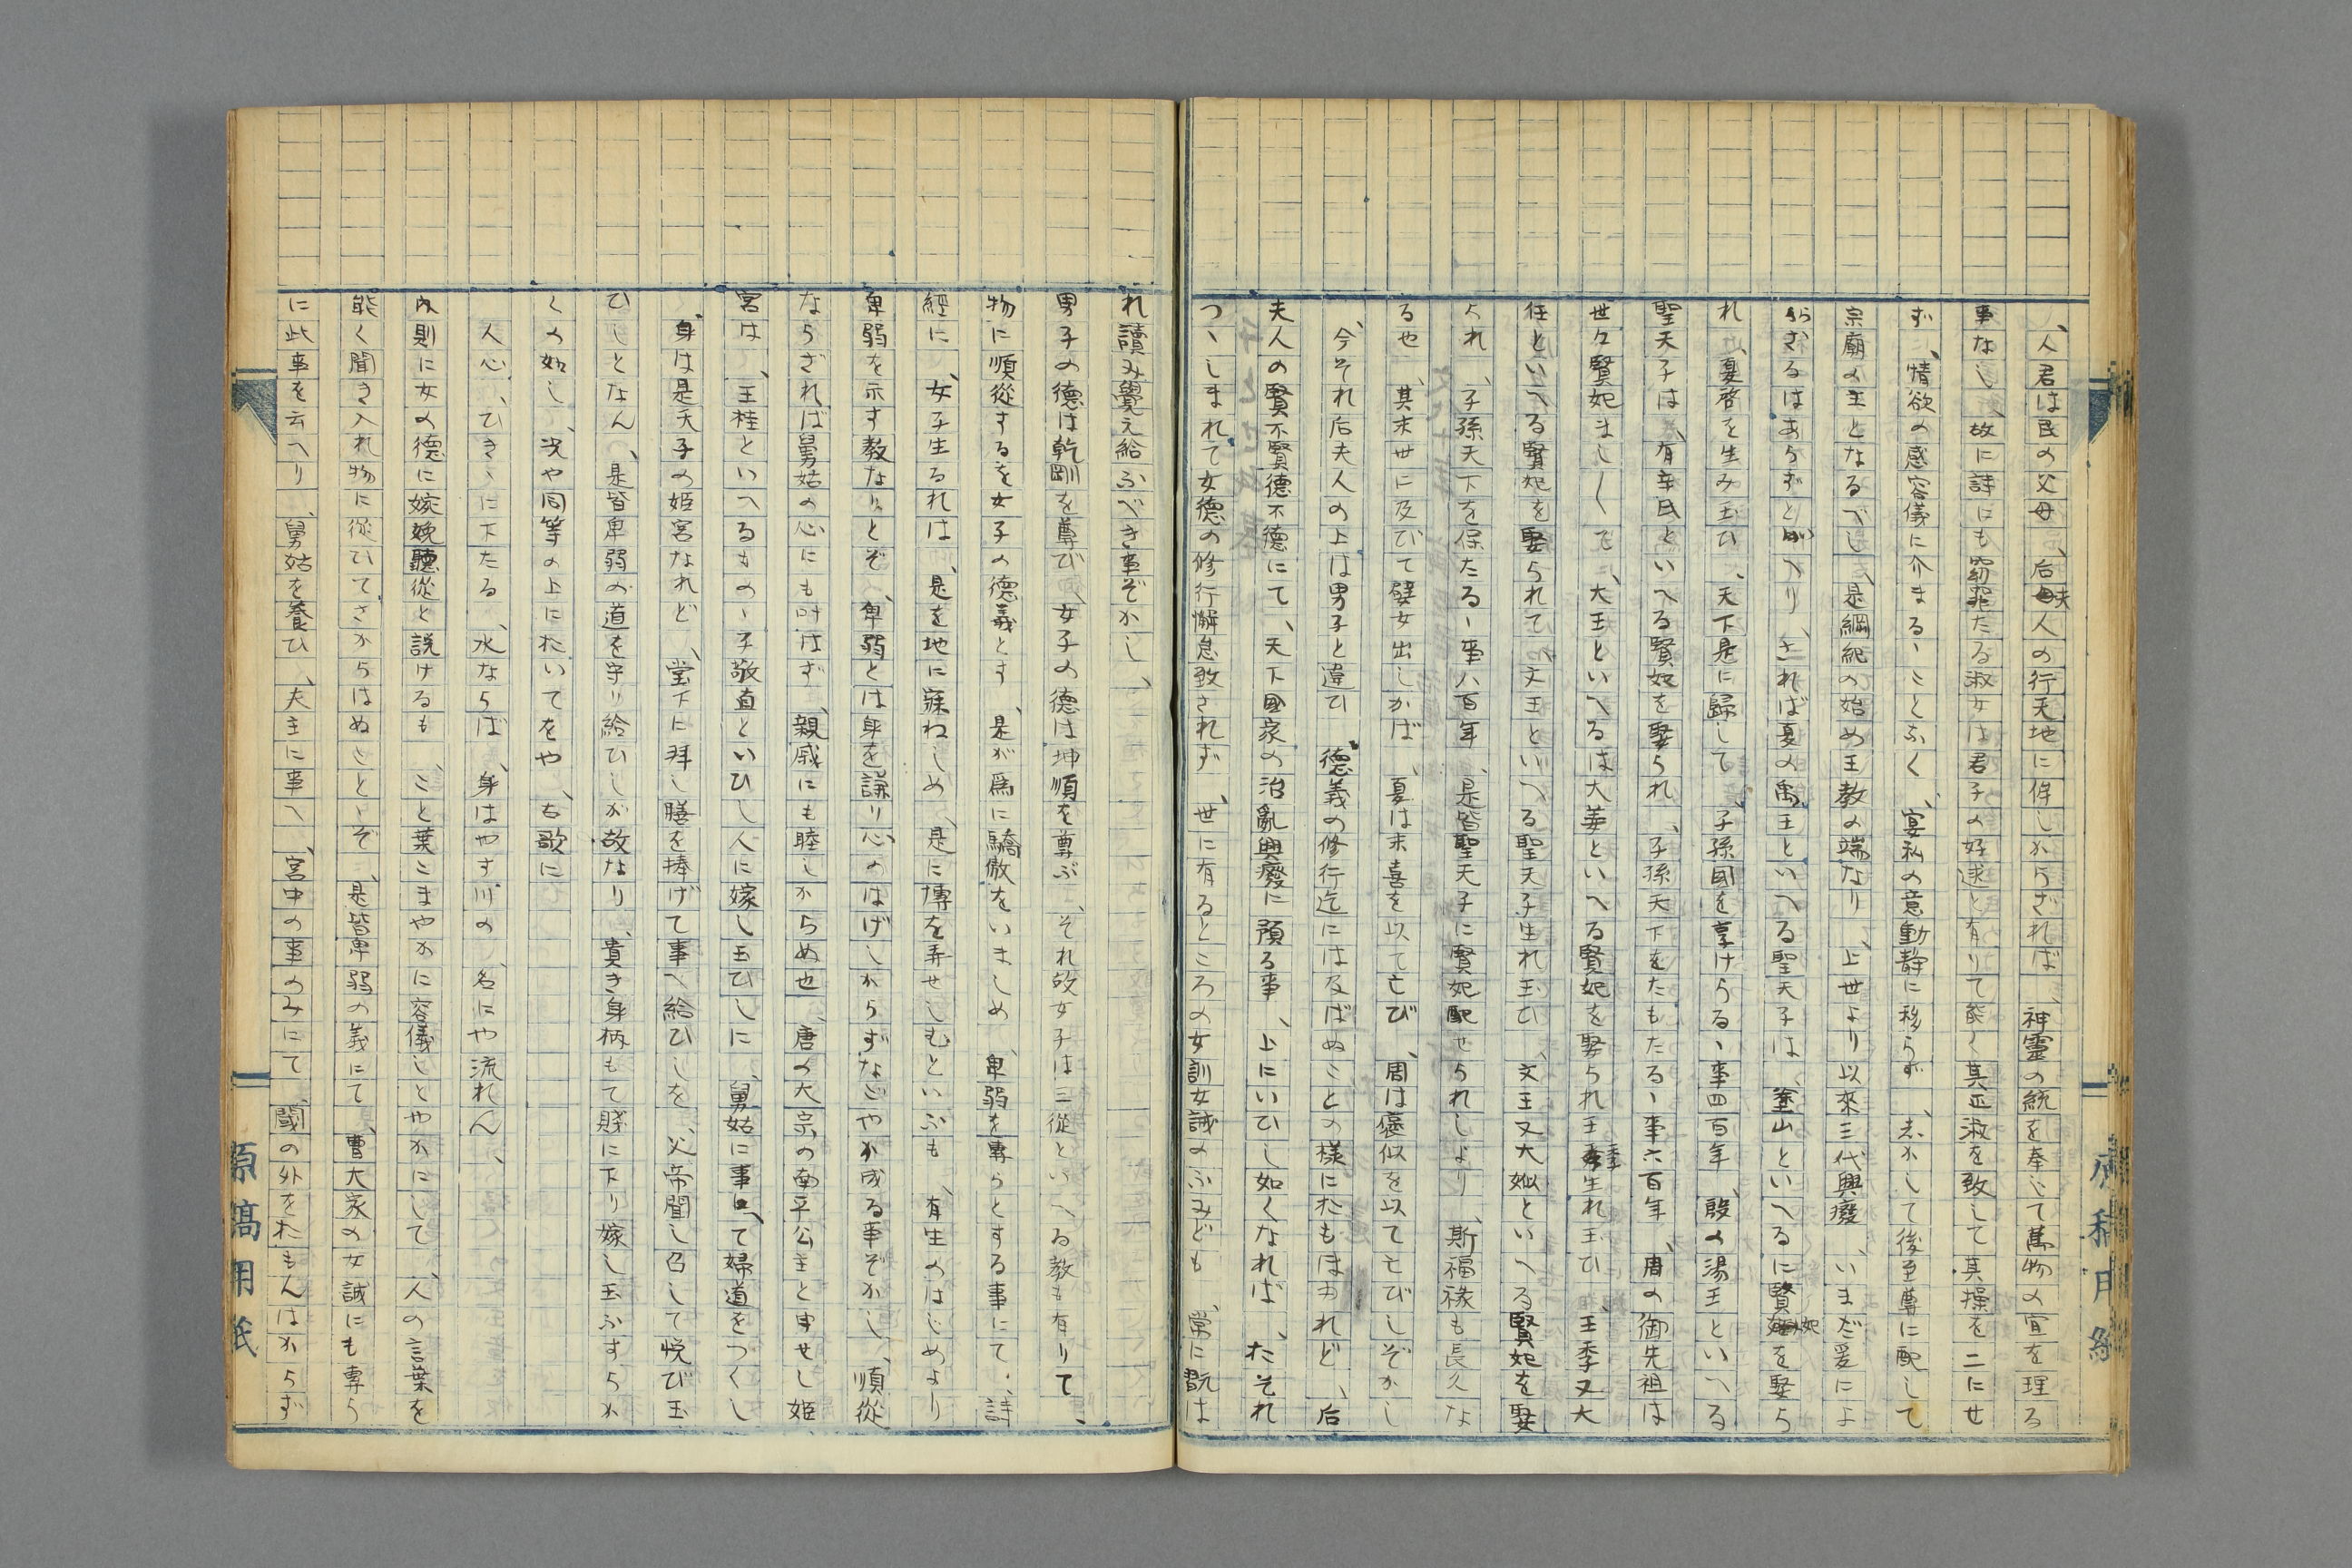 、人君は民の父母、后夫人の行天地に侔しからざれば、神靈の統を奉じて萬物の宜を理る
事なし、故に詩にも窈窕たる淑女は君子の好逑と有りて能く其正淑を致して其操を二にせ
ず、情欲の感容儀に介まるヽことふく、宴私の意動静に移らず、志かして後至尊に配して
宗廟の主となるべし、是綱紀の始め王教の端なり、上世より以來三代興癈、いまだ爰によ
らざるはあらずと云へり、されば夏の禹王といへる聖天子は、塗山といへるに賢妃を娶ら
れ、夏啓を生み玉ひ、天下是に歸して、子孫國を享けらるヽ事四百年、殷の湯王といへる
聖天子は、有㜪氏といへる賢妃を娶られ、子孫天下をたもたるヽ事六百年、周の御先祖は
世々賢妃まし〱て、大王といへるは大姜といへる賢妃を娶られ王季生れ玉ひ、王季又大
任といへる賢妃を娶られて、文王といへる聖天子生れ玉ひ、文王又大姒といへる賢妃を娶
られ、子孫天下を保たるヽ事八百年、是皆聖天子に賢妃配せられしより、斯福祿も長久な
る也、其末世に及びて嬖女出しかば、夏は末喜を以て亡び、周は褒似を以て亡びしぞかし
、今それ后夫人の上は男子と違ひ、德義の修行迄には及ばぬことの様におもほすれど、后
夫人の賢不賢德不德にて、天下國家の治亂興癈に預る事、上にいひし如くなれば、たそれ
つヽしまれて女德の修行懈怠致されず、世に有るところの女訓女誡のふみども、常に翫は
れ讀み覺え給ふべき事ぞかし、
男子の德は乾剛を尊び、女子の德は坤順を尊ぶ、それ故女子は三從といへる教も有りて、
物に順從するを女子の德義とす、是が爲に驕傲をいましめ、卑弱を專らとする事にて、詩
經に、女子生るれは、是を地に寐ねしめ、是に塼を弄せしむといふも、有生のはじめより
卑弱を示す教なりとぞ、卑弱とは身を謙り心のはげしからずなごやか成る事ぞかし、順從
ならざれば舅姑の心にも叶はず、親戚にも睦しからぬ也、唐の大宗の南平公主と申せし姬
宮は、王桂といへるものヽ子敬直といひし人に嫁し玉ひしに、舅姑に事へて婦道をつくし
、身は是天子の姬宮なれど、堂下に拜し膳を捧げて事へ給ひしを、父帝聞し召して悦び玉
ひしとなん、是皆卑弱の道を守り給ひしが故なり、貴き身柄もて賤に下り嫁し玉ふすらか
くの如し、况や同等の上においてをや、古歌に
人心、ひきヽに下たる、水ならば、身はやす川の、名にや流れん、
內則に女の德に嫁娩聽從と説けるも、こと葉こまやかに容儀しとやかにして、人の言葉を
能く聞き入れ物に從ひてさからはぬことヽぞ、是皆卑弱の義にて、曹大家の女誡にも專ら
に此事を云へり、舅姑を養ひ、夫主に事へ、宮中の事のみにて、閫の外をおもんはからず
原稿用紙